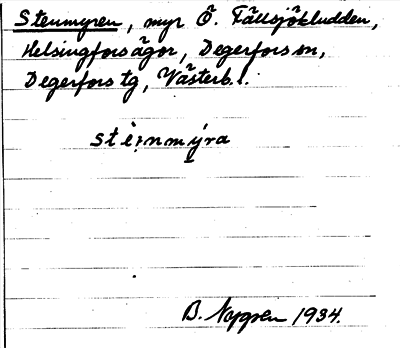 Stenmyren, myr Ö. Fällsjökludden,
Helsingfors ägor, Degerfors sn,
Degerfors tg, Västerb. l.
stè;nmýra
B. Nygren 1934.